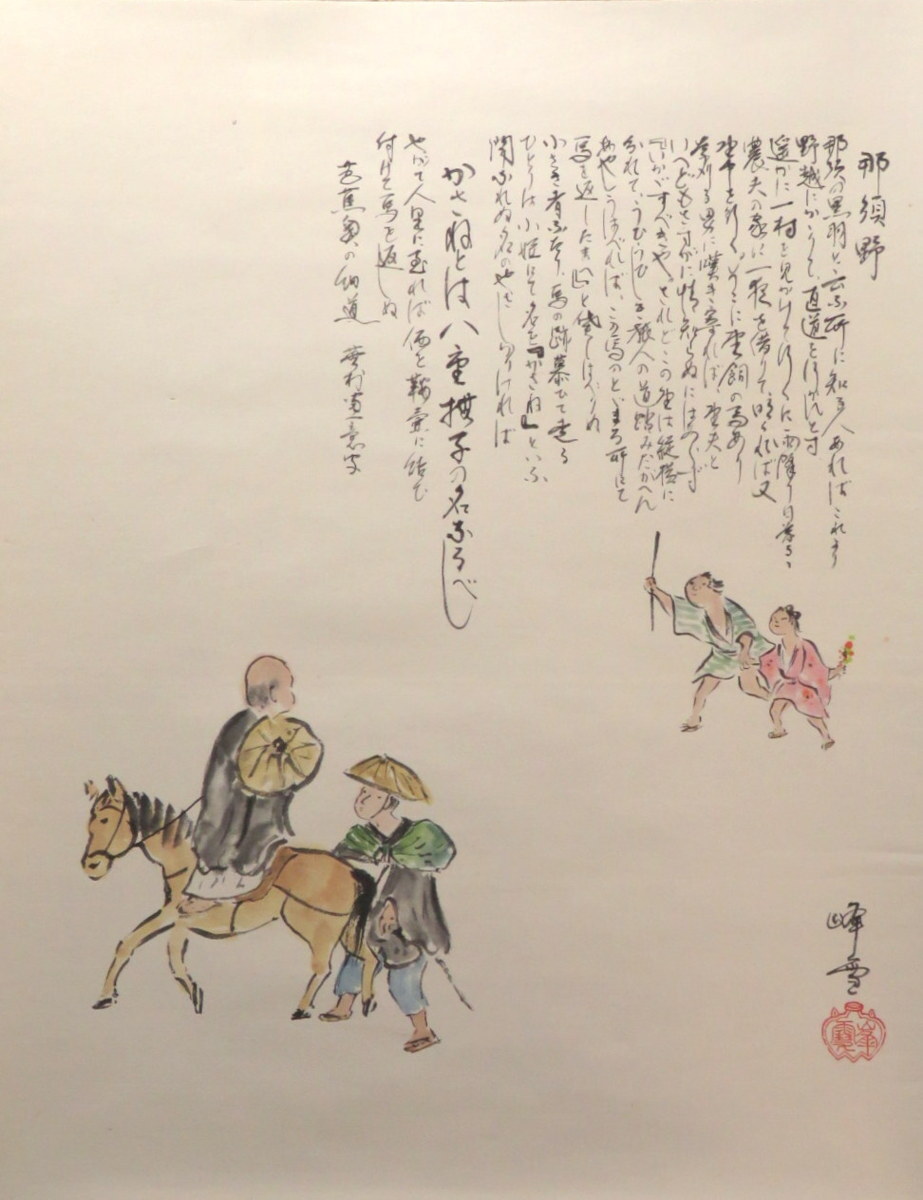 那須野
那須の黒羽と云ふ所に知る人あれば これより
野越にかゝりて、直道をゆかんとす
遥かに一村を見かけて行くに 雨降り日暮るゝ
農夫の家に一夜を借りて、明くれば又
野中を行く。そこに野飼の馬あり
草刈る男に嘆き寄れば、野夫と
いへどもさすがに情知らぬにはあらず
「いかがすべきや、されどこの野は縦横に
わかれて、うひうひしき旅人の道踏みたがへん
あやしうはべれば、この馬のとどまる所にて
馬を返したまへ」と貸しはべりぬ
小さき者ふたり、馬の跡慕ひて走る
ひとりは小姫にて名を「かさね」といふ
聞きなれぬ名のやさしかりければ
かさねとは八重撫子の名なるべし
やがて人里に至れば 価を鞍壺に結び
付けて馬を返しぬ
芭蕉 奥の細道 蕪村画意写
峰雪